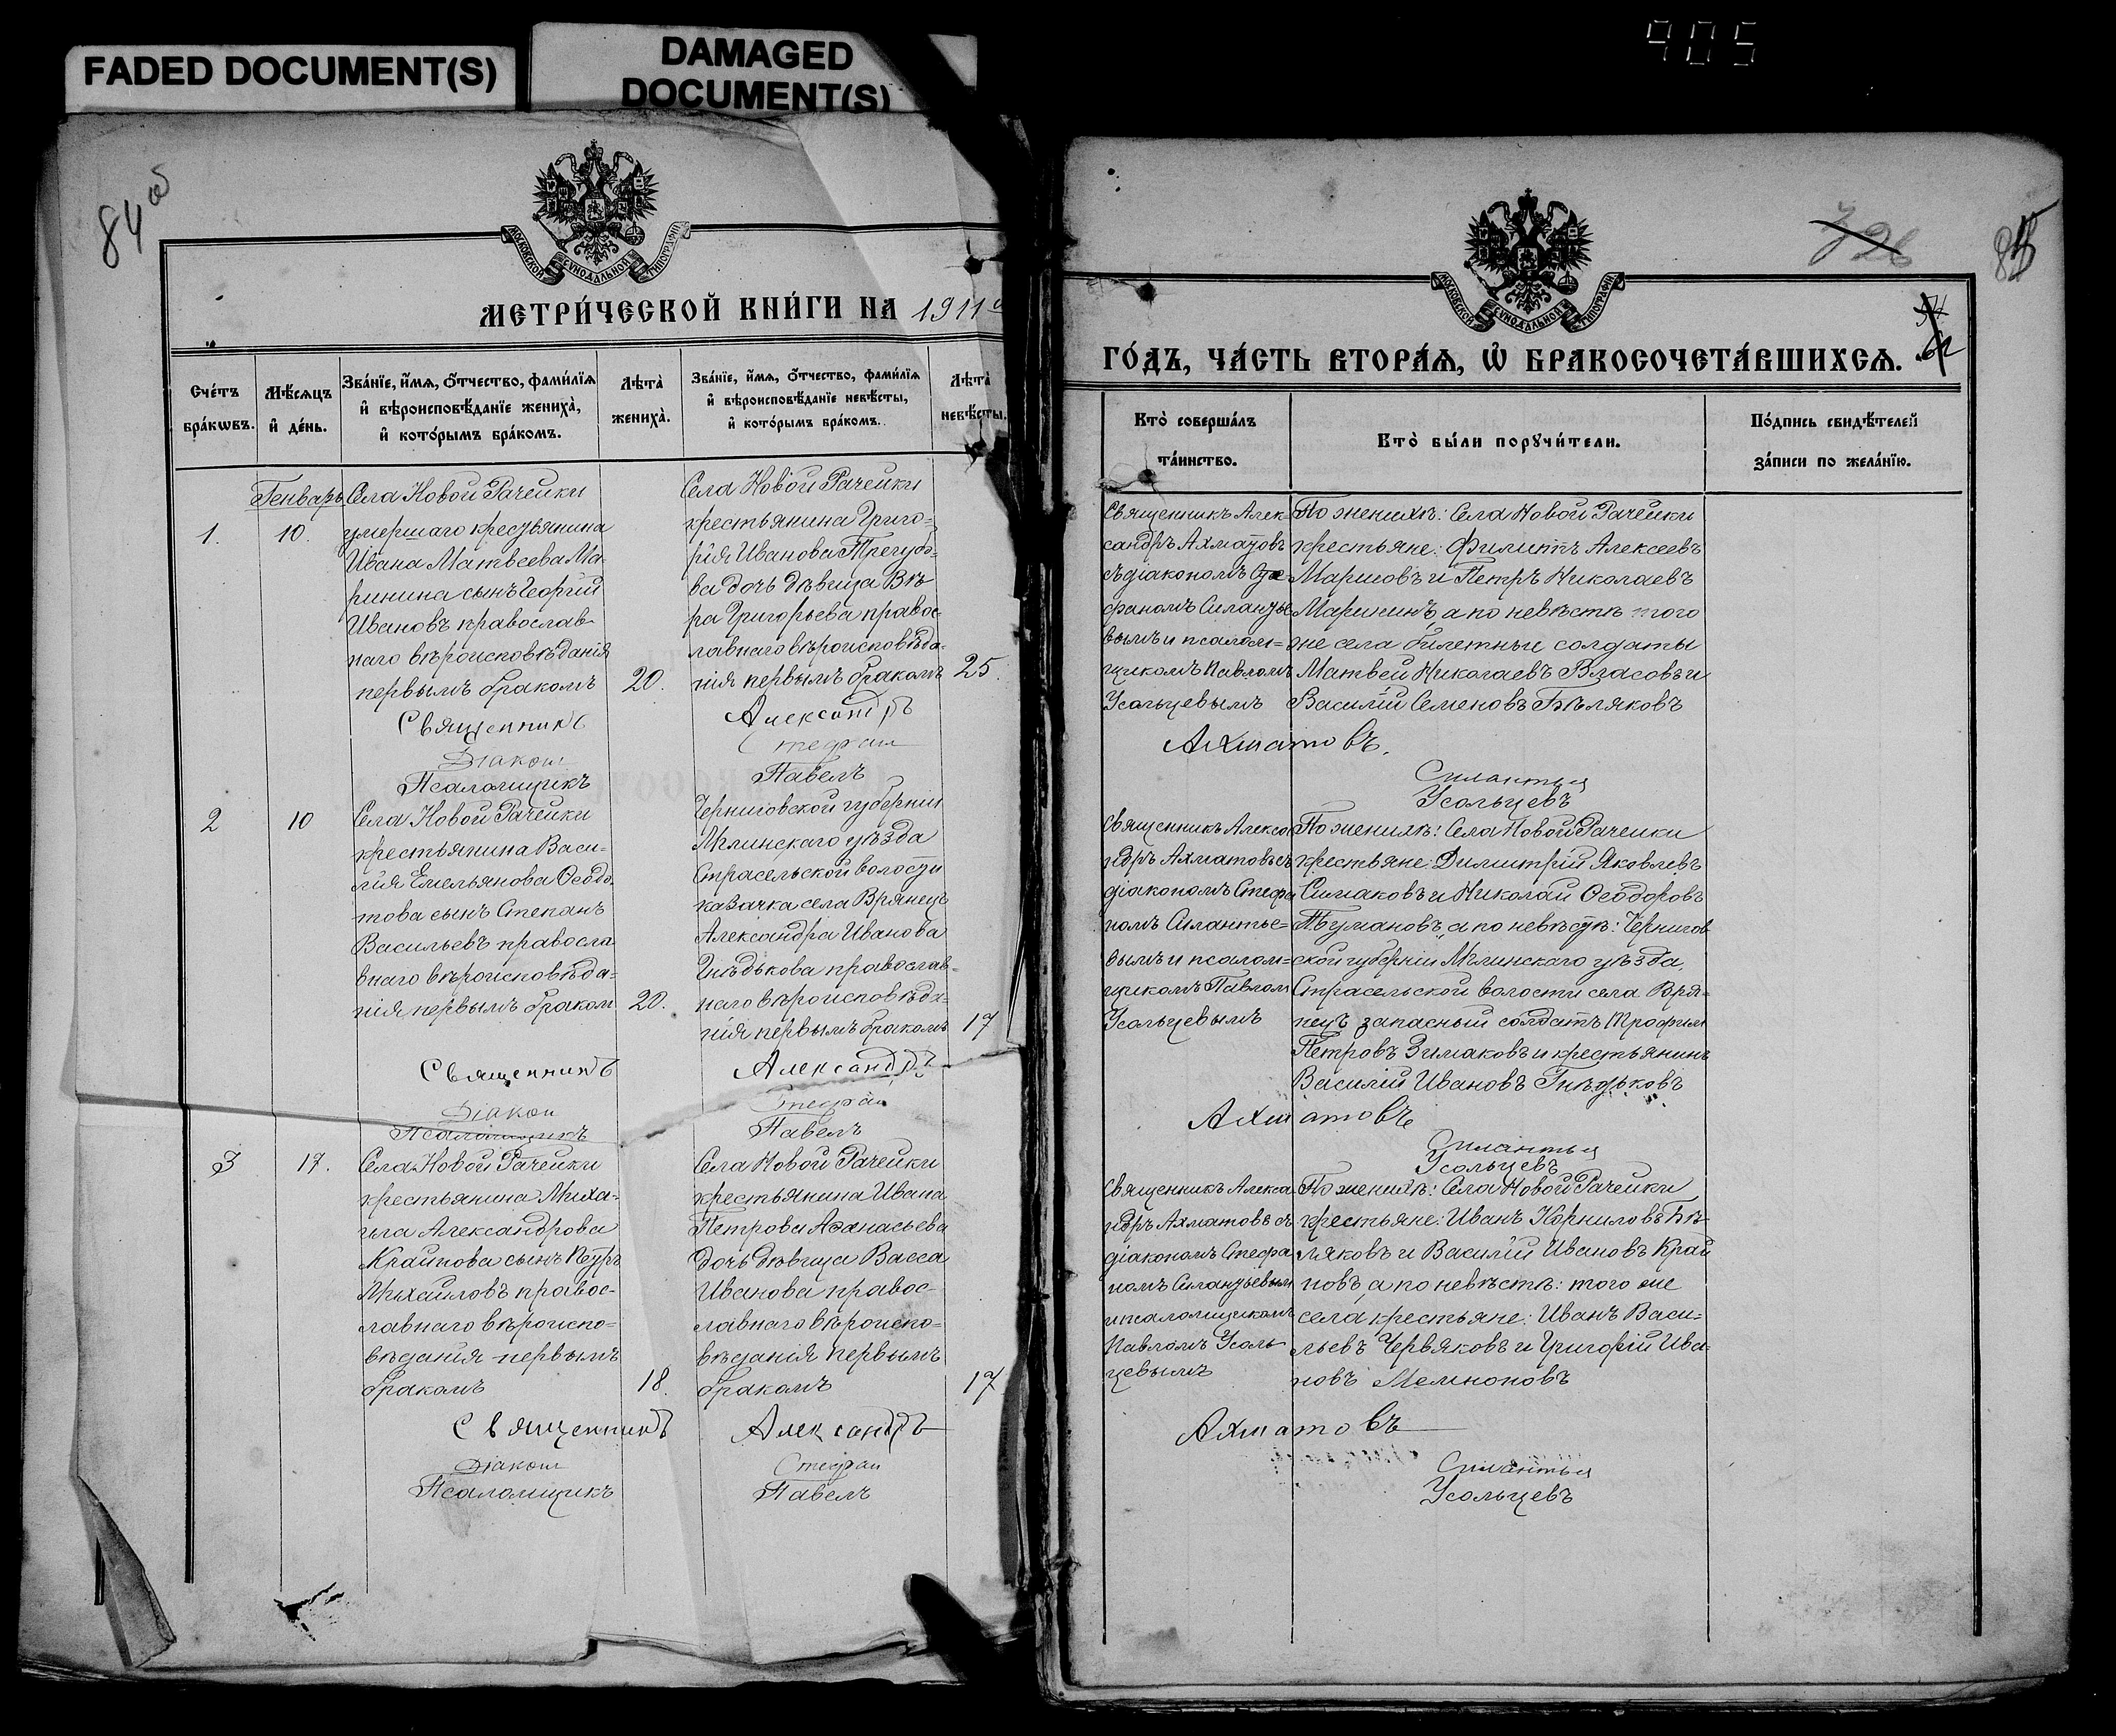 FADED DOCUMENT(S)
DAMAGED
DOCUMENT(S)
905
84 об
МОСКОВСКОЙ СѴНОДАЛЬНОЙ ТИПОГРАФІИ
МЕТРИ́ЧЕСКОЙ КНИ́ГИ НА 1911
Сче́тъ
бра́кѡвъ.
Мѣ́сѧцъ
и҆ де́нь.
Зва́нїе, и҆́мѧ, ѻ҆́тчество, фами́лїѧ
и҆ вѣроисповѣ́данїе жениха̀,
и҆ кото́рымъ бра́комъ.
Лѣта̀
жениха̀.
Зва́нїе, и҆́мѧ, ѻ҆́тчество, фами́лїѧ
и҆ вѣроисповѣ́данїе невѣ́сты,
и҆ кото́рымъ бра́комъ.
Лѣта̀
невѣ́сты.
Генварь
1.
10.
Села Новой Рачейки
умершаго крестьянина
Ивана Матвѣева Ма-
ринина сынъ Георгій
Ивановъ православ-
наго вѣроисповѣданія
первымъ бракомъ
20.
Села Новой Рачейки
крестьянина Григо-
рія Иванова Трегубо-
ва дочь дѣвица Вѣ-
ра Григорьева правос-
лавнаго вѣроисповѣда-
нія первымъ бракомъ
25.
Священникъ Александръ
Діакон Стефан
Псаломщикъ Павелъ
2
10
Села Новой Рачейки
крестьянина Васи-
лія Емельянова Ѳедо-
това сынъ Степанъ
Васильевъ правосла-
внаго вѣроисповѣда-
нія первымъ браком
20.
Черниговской губерніи
Мглинскаго уѣзда
Страсельской волости
казачка села Врянецъ
Александра Иванова
Гнѣдькова православ-
наго вѣроисповѣда-
нія первымъ бракомъ
17
Священникъ Александръ
Діакон Стефан
Псаломщикъ Павелъ
3
17.
Села Новой Рачейки
крестьянина Миха-
ила Александрова
Крайнова сынъ Петръ
Михайловъ правос-
лавнаго вѣроиспо-
вѣданія первымъ
бракомъ
18.
Села Новой Рачейки
крестьянина Ивана
Петрова Аѳанасьева
дочь дѣвица Васса
Иванова правос-
лавнаго вѣроиспо-
вѣданія первымъ
бракомъ
17
Священникъ Александръ
Діакон Стефан
Псаломщикъ Павелъ
726
85
МОСКОВСКОЙ СѴНОДАЛЬНОЙ ТИПОГРАФІИ
ГО́ДЪ, ЧА́СТЬ ВТОРА́Ѧ, Ѡ҆ БРАКОСОЧЕТА́ВШИХСѦ.
Кто̀ соверша́лъ
та́инство.
Кто̀ бы́ли порꙋчи́тели.
По́дпись свидѣ́телей
за́писи по жела́нїю.
Священникъ Алек-
сандръ Ахматовъ
съ діакономъ Сте-
фаномъ Силантье-
вымъ и псалом-
щикомъ Павломъ
Усольцевымъ
По женихѣ: Села Новой Рачейки
крестьяне: Филиппъ Алексеевъ
Маришовъ и Петръ Николаевъ
Марининъ, а по невѣстѣ того
же села билетные солдаты
Матвей Николаевъ Власовъ и
Василій Семеновъ Бѣляковъ
Ахматовъ.
Силантьев
Усольцевъ
Священникъ Алекса
ндръ Ахматовъ съ
діакономъ Стефа
номъ Силантье-
вымъ и псалом-
щикомъ Павлом
Усольцевымъ
По женихѣ: Села Новой Рачейки
крестьяне: Димитрій Яковлевъ
Симаковъ и Николай Ѳеодоровъ
Тумановъ, а по невѣстѣ: Чернигов
ской губерніи Мглинскаго уѣзда,
Страсельской волости села Вря-
нецъ запасный солдатъ Трофим
Петровъ Зимаковъ и крестьянинъ
Василій Ивановъ Гнѣдьковъ
Ахматовъ
Силантьев
Усольцевъ
Священникъ Алекса
ндръ Ахматовъ съ
діакономъ Стефа
номъ Силантьевым
и псаломщикомъ
Павломъ Усоль
цевымъ
По женихѣ: Села Новой Рачейки
крестьяне: Иванъ Корниловъ Бѣ-
ляковъ и Василій Ивановъ Край
новъ, а по невѣстѣ: того же
села крестьяне: Иванъ Васи-
льевъ Червяковъ и Григорій Ива-
новъ Мемноновъ
Ахматовъ
Силантьев
Усольцевъ